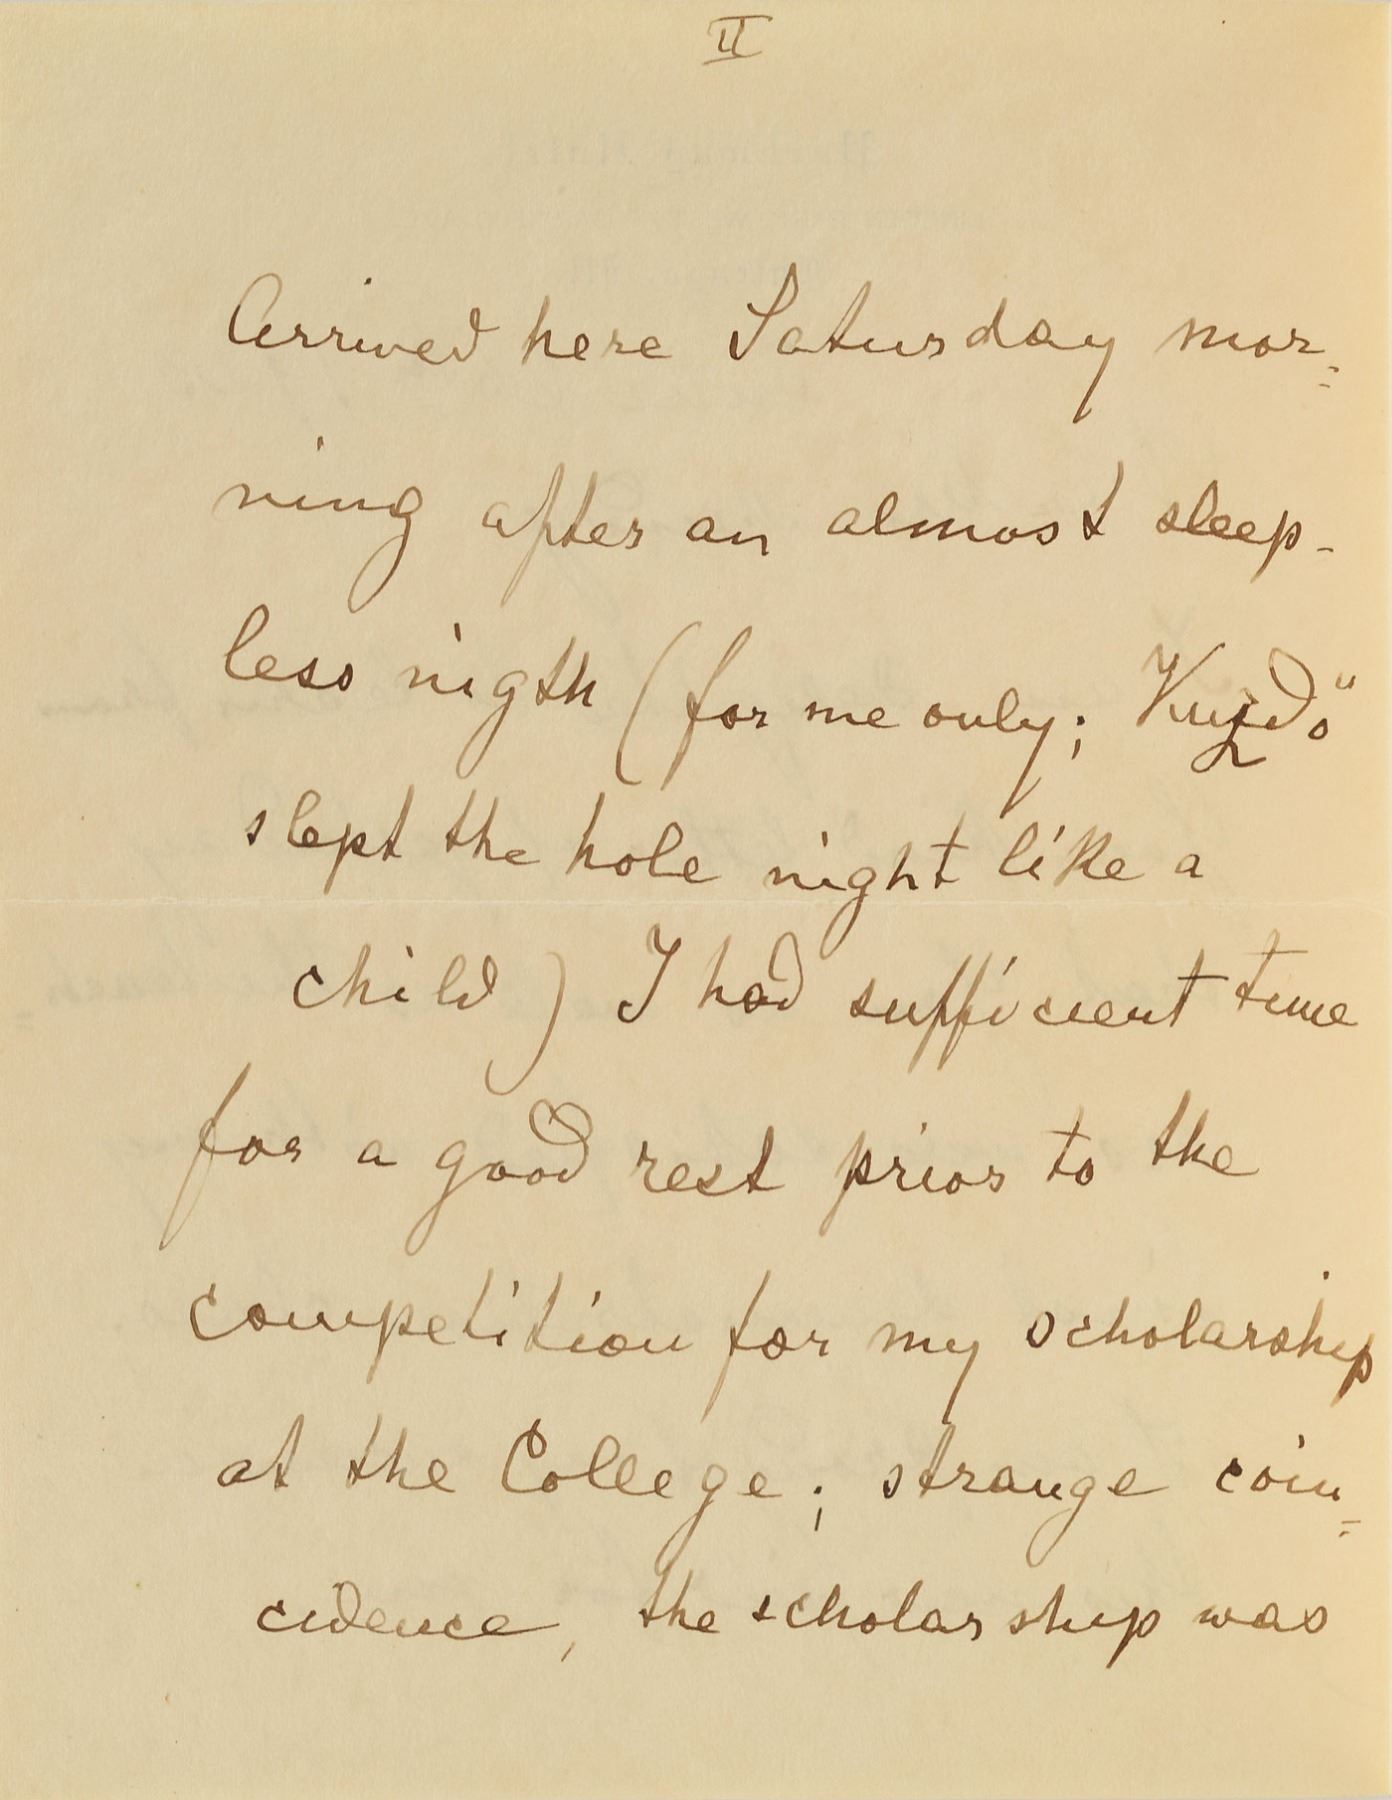 II
Arrived here Saturday mor=
ning after an almost sleep-
less nigth (for me only; Kuzdö
slept the hole night like a
child) I had sufficient time
for a good rest prior to the
competition for my scholarship
at the College; strange coin=
cidence, the scholarship was